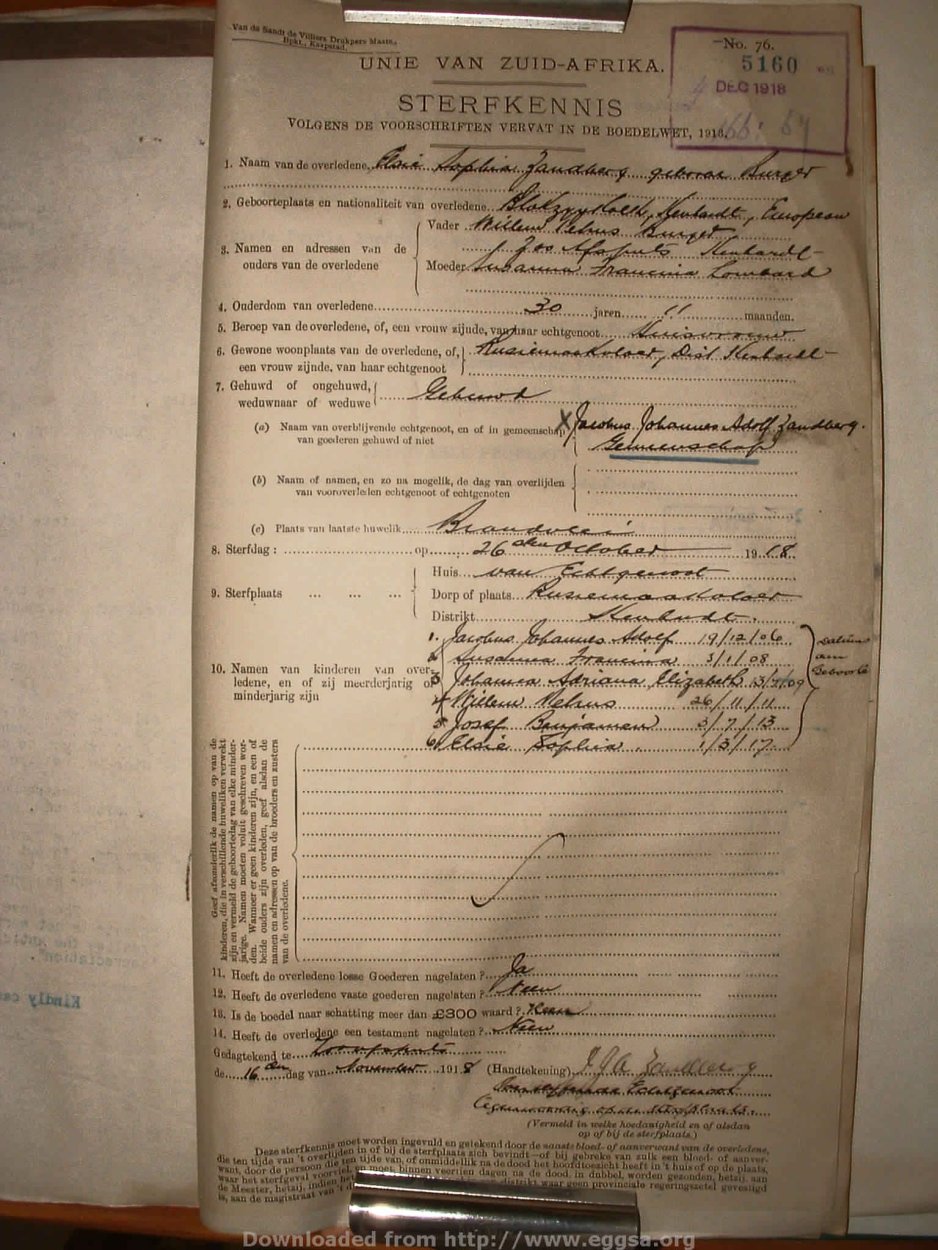 Van de Sandt de Villiers Drukpers Maats.,
Bpkt., Kaapstad.
No. 76.
5160
DEC 1918
UNIE VAN ZUID-AFRIKA.
STERFKENNIS
VOLGENS DE VOORSCHRIFTEN VERVAT IN DE BOEDELWET, 1913.
1. Naam van de overledene, Elsie Sophia Zandberg geboren Burger
2. Geboorteplaats en nationaliteit van overledene. Kenhardt, European
3. Namen en adressen van de ouders van de overledene
Vader Willem Petrus Burger
Kenhardt
Moeder Susanna Francina Lombaard
4. Ouderdom van overledene 30 jaren 11 maanden.
5. Beroep van de overledene, of, een vrouw zijnde, van haar echtgenoot Huisvrouw
6. Gewone woonplaats van de overledene, of, een vrouw zijnde, van haar echtgenoot Dist Kenhardt
7. Gehuwd of ongehuwd, weduwnaar of weduwe Gehuwd
(a) Naam van overblijvende echtgenoot, en of in gemeenschap van goederen gehuwd of niet
X Jacobus Johannes Adolf Zandberg.
Gemeenschap
(b) Naam of namen, en zo na mogelik, de dag van overlijden van vooroverleden echtgenoot of echtgenoten
(c) Plaats van laatste huwelik Brandvlei
8. Sterfdag: op 26 sten October 1918.
9. Sterfplaats
Huis van Echtgenoot
Dorp of plaats
Distrikt Kenhardt.
10. Namen van kinderen van overledene, en of zij meerderjarig of minderjarig zijn
1. Jacobus Johannes Adolf 19/12/06
2 Susanna Francina 3/1/08
3 Johanna Adriana Elizabeth
4 Willem Petrus 26/11/11
5 Josef Benjamen 3/7/13
6 Elsie Sophia. 1/3/17
Datum
van
Geboorte
Geef afzonderlik de namen op van de kinderen, die in verschillende huweliken verwekt zijn en vermeld de geboortedag van elke minderjarige. Namen moeten voluit geschreven worden. Wanneer er geen kinderen zijn, en een of beide ouders zijn overleden, geef alsdan de namen en adressen op van de broeders en zusters van de overledene.
11. Heeft de overledene losse Goederen nagelaten? Ja
12. Heeft de overledene vaste goederen nagelaten? Neen
13. Is de boedel naar schatting meer dan £300 waard? Neen
14. Heeft de overledene een testament nagelaten? Neen
Gedagtekend te
de 16 den dag van November 1918 (Handtekening) J J A Zandberg
Echtgenoot
(Vermeld in welke hoedanigheid en of alsdan
op of bij de sterfplaats.)
Deze sterfkennis moet worden ingevuld en getekend door de naaste bloed- of aanverwant van de overledene,
die ten tijde van 't overlijden in of bij de sterfplaats zich bevindt—of bij gebreke van zulk een bloed- of aanver-
want, door de persoon die ten tijde van, of onmiddellik na de dood het hoofdtoezicht heeft in 't huis of op de plaats,
waar het sterfgeval voorviel, en moet, binnen veertien dagen na de dood, in dubbel, worden gezonden, hetzij, aan
de Meester, hetzij, indien het distrikt waar geen provinciale regeringszetel gevestigd
is, aan de magistraat van 't d
Kindly
Downloaded from http://www.eggsa.org